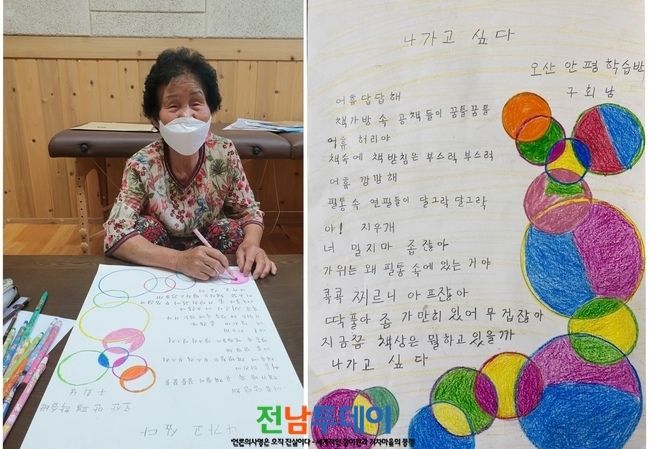 나가고 싶다
오산 안평 학습반
구 희 남
어휴 답답해
책가방 속 공책들이 꿈틀꿈틀
어휴 허리야
책속에 책받침은 부스럭 부스럭
어휴 깜깜해
필통속 연필들이 달그락 달그락
야! 지우개
너 밀지마 좁잖아
가위는 왜 필통 속에 있는 거야
콕콕 찌르니 아프잖아
딱풀아 좀 가만히 있어 무겁잖아
지금쯤 책상은 뭘하고 있을까
나가고 싶다
전남투데이
언론의사명은 오직 진실이다 - 세계적인 장미원과 기차마을의 풍경